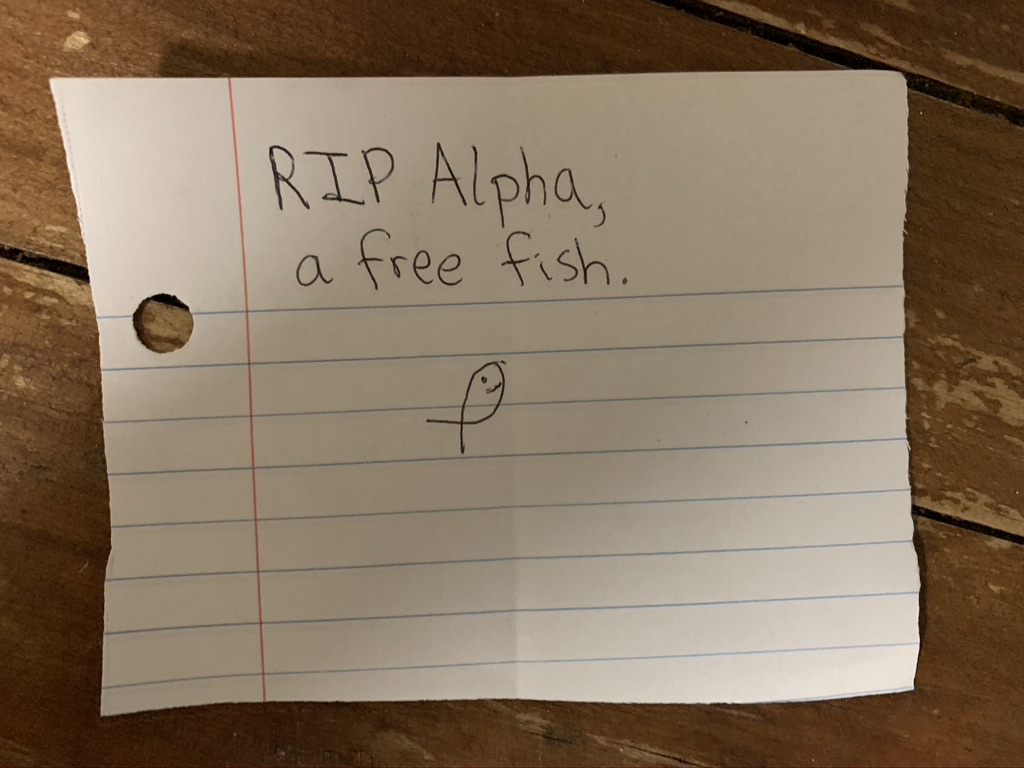 RIP Alpha,
a free fish.